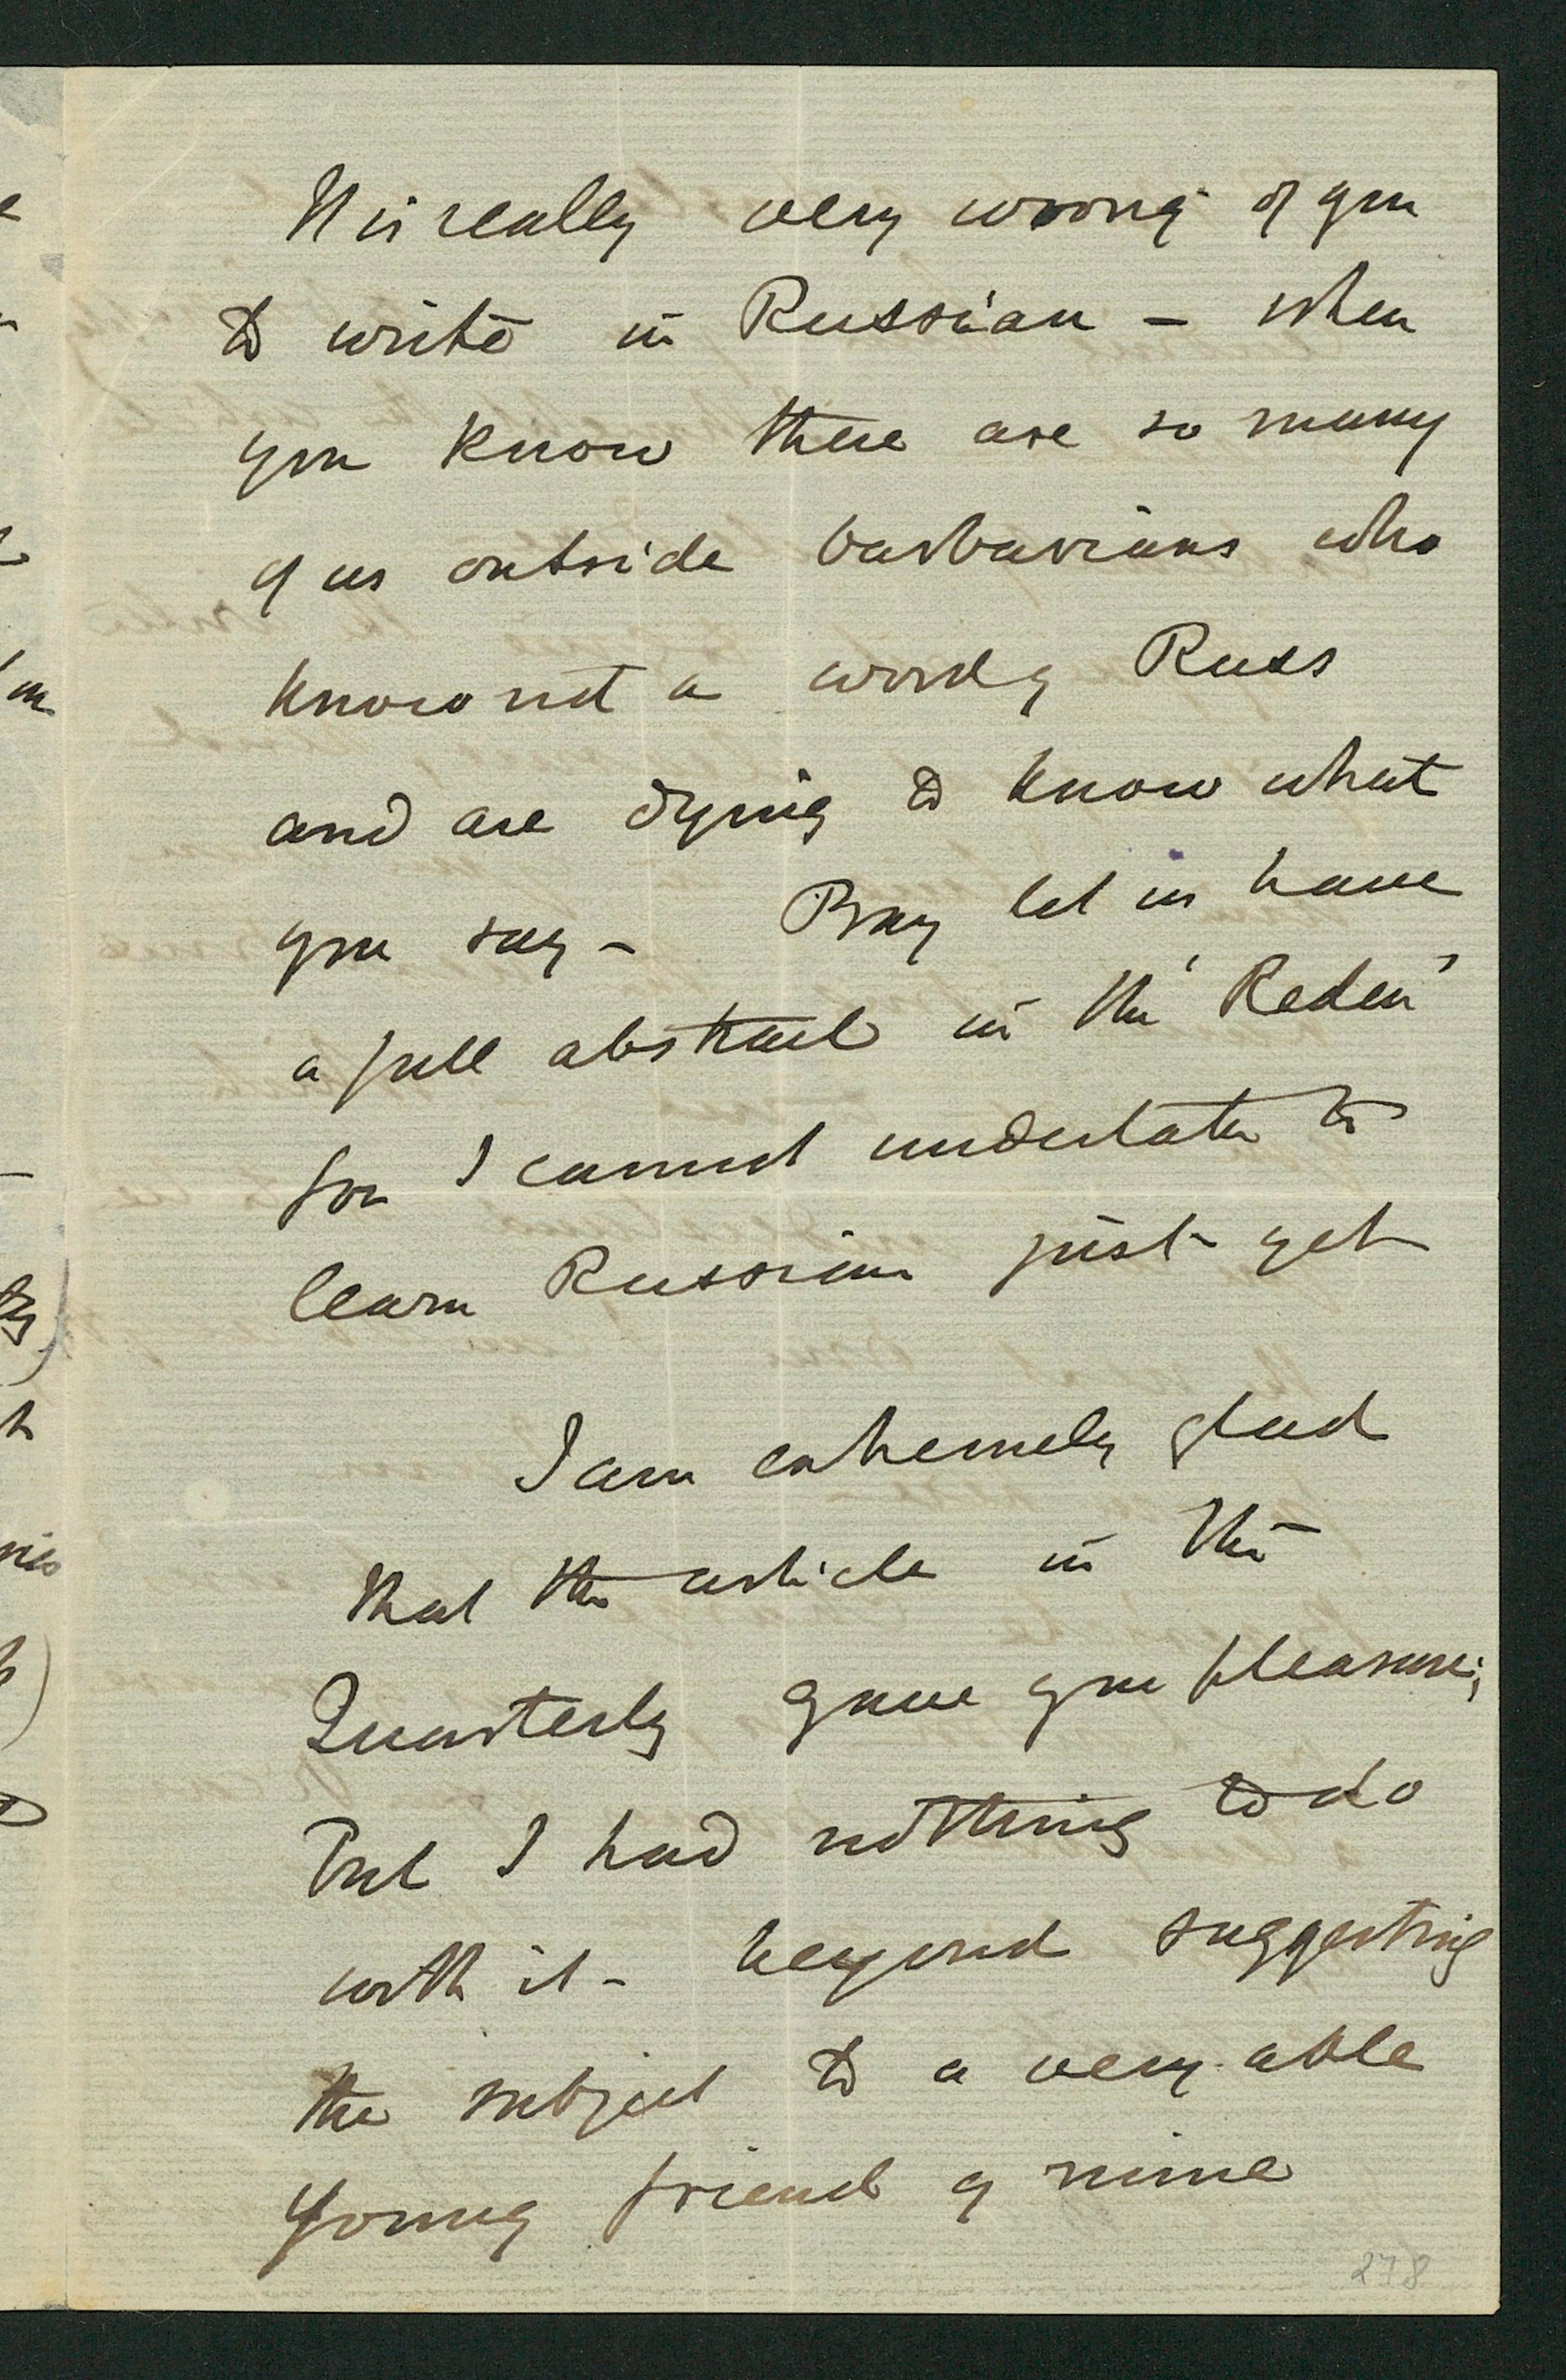 It is really very wrong of you
to write in Russian – when
you know there are so many
of us outside barbarians who
know not a word of Russ
and are dying to know what
you say – Pray let us have
a full abstract in the 'Reden'
for I cannot undertake to
learn Russian just yet
I am extremely glad
that the article in the
Quarterly gave you pleasure;
But I had nothing to do
with it – beyond suggesting
the subject to a very able
young friend of mine
278